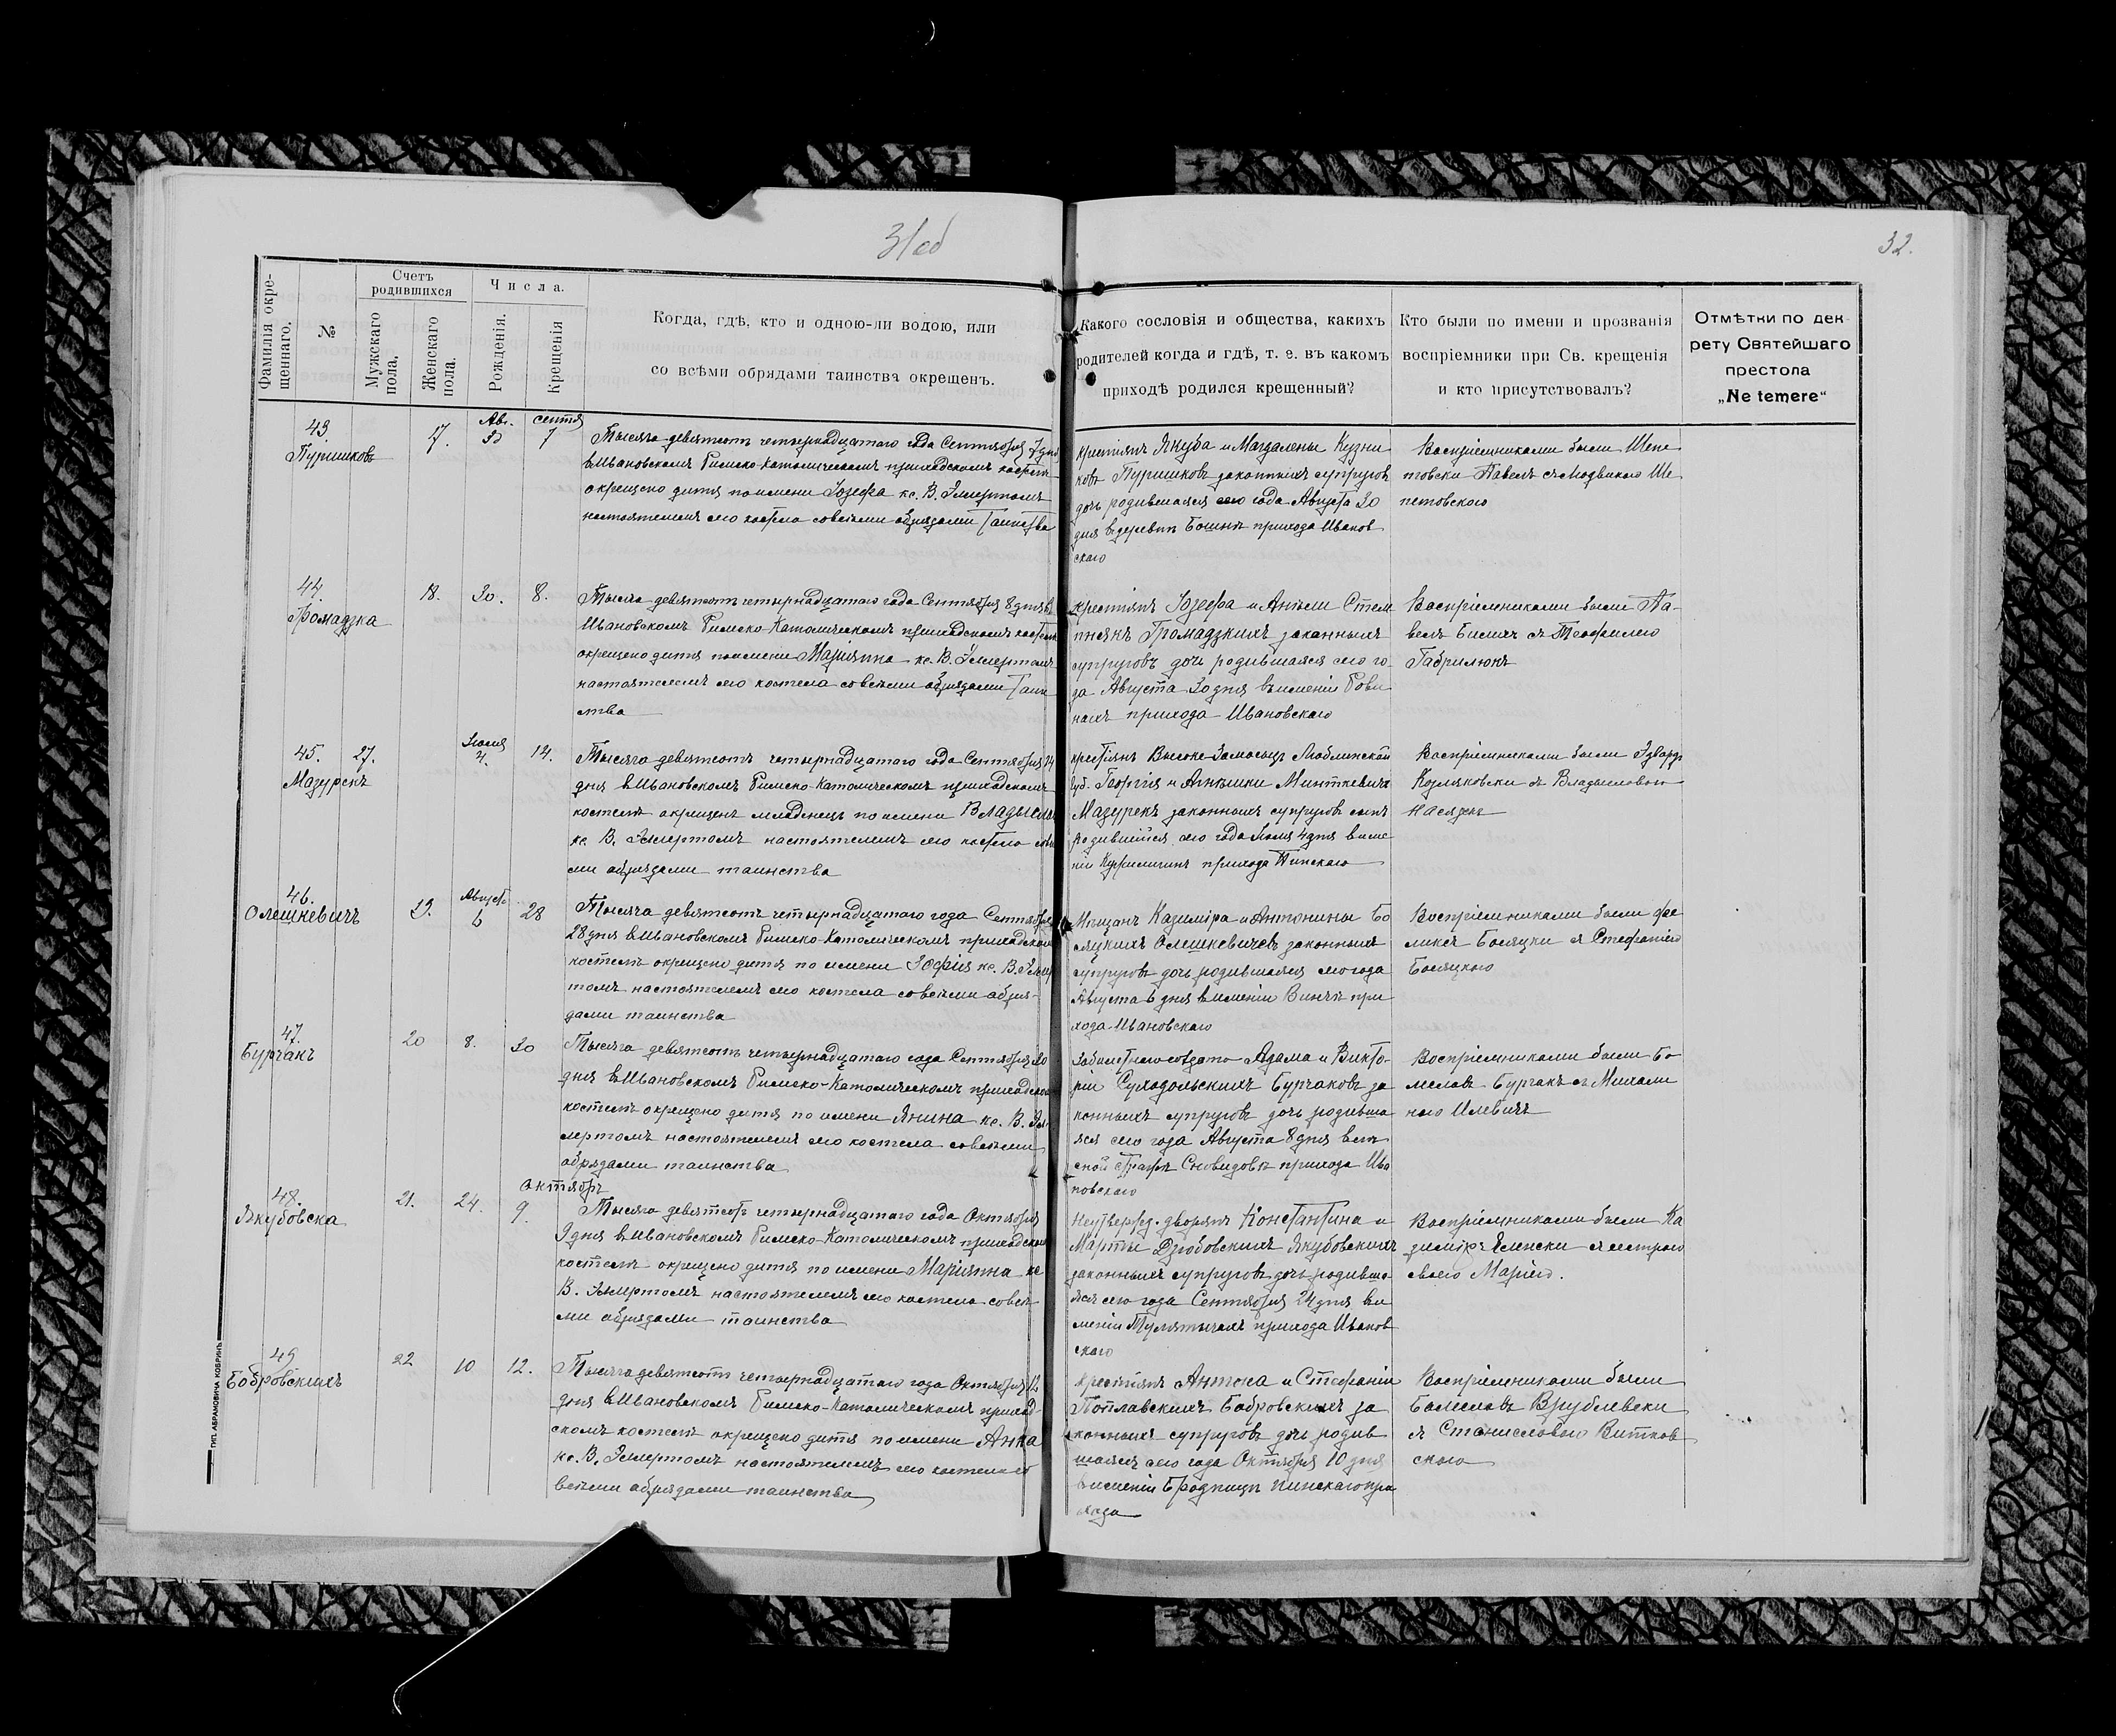 31об
32.
Фамилія окре-
щеннаго.
№
Счетъ
родившихся
Мужскаго
пола.
Женскаго
пола.
Числа.
Рожденія.
Крещенія
Когда, гдѣ, кто и одною-ли водою, или
со всѣми обрядами таинства окрещенъ.
Какого сословія и общества, какихъ
родителей когда и гдѣ, т. е. въ какомъ
приходѣ родился крещенный?
Кто были по имени и прозванія
воспріемники при Св. крещенія
и кто присутствовалъ?
Отмѣтки по дек
рету Святейшаго
престола
„Ne temere“
43.
Пуришковъ
17.
Авг.
30
сентя
7
Тысяча девятсотъ четырнадцатаго года Сентября 7 дня
в Ивановскомъ Римско-Католическомъ приходскомъ костелѣ
окрещено дитя по имени Іозефа кс. В. Эммертомъ
настоятелемъ сего костела со всѣми обрядами Таинства
крестьянъ Якуба и Магдалены Кузни
ковъ Пуришковъ законныхъ супруговъ
дочь родившаяся сего года Августа 30
дня в деревнѣ прихода Иванов
скаго
Воспріемниками были Шепе
товски Павелъ съ Ше
петовского
44.
Громадзка
18.
30.
8.
Тысяча девятсотъ четырнадцатаго года Сентября 8 дня в
Ивановскомъ Римско-Католическомъ приходскомъ костелѣ
окрещено дитя по имени Маріянна кс. В. Эммертомъ
настоятелемъ сего костела со всѣми обрядами Таин
ства
крестьянъ Іозефа и Анѣли Стем
Громадзкихъ законныхъ
супруговъ дочь родившаяся сего го
да Августа 30 дня въ имѣніи Рови
нахъ прихода Ивановскаго
Воспріемниками были Па-
велъ съ Теофилею
Габрилюкъ
45.
27.
Мазурекъ
Іюля
4.
14.
Тысяча девятсотъ четырнадцатаго года Сентября 14
дня в Ивановскомъ Римско-Католическомъ приходскомъ
костелѣ окрещенъ младенецъ по имени Владыслав
кс. В. Эммертомъ настоятелемъ сего костела со всѣ
ми обрядами таинства
крестьянъ Люблинской
губ. Георгія и Минткевичъ
Мазурекъ законныхъ супруговъ сынъ
родившійся сего года Іюля 4 дня в имѣ
ніи прихода Пинскаго
Воспріемниками были Эдвардъ
Козляковски съ Владыславою
46.
Олешкевичъ
19.
Августъ
6
28
Тысяча девятсотъ четырнадцатаго года Сентября
28 дня в Ивановскомъ Римско-Католическомъ приходскомъ
костелѣ окрещено дитя по имени Зофія кс. В. Эммер
томъ настоятелемъ сего костела со всѣми обря-
дами таинства
Мѣщанъ Казиміра и Антонины Бо
сяцкихъ Олешкевичевъ законныхъ
супруговъ дочь родившаяся сего года
Августа 6 дня в имѣніи при
хода Ивановскаго
Воспріемниками были Фе
ликсъ Босяцки съ Стефаніею
Босяцкою
47.
Бурчакъ
20
8.
30
Тысяча девятсотъ четырнадцатаго года Сентября 30
дня в Ивановскомъ Римско-Католическомъ приходском
костелѣ окрещено дитя по имени Янина кс. В. Эм
мертомъ настоятелемъ сего костела со всѣми
обрядами таинства
Адама и Викто
ріи Суходольскихъ Бурчаковъ за
конныхъ супруговъ дочь родивша
яся сего года Августа 8 дня в лѣ
сной прихода Ива
новскаго
Воспріемниками были Бо
леславъ Бурчакъ съ Михали
ною Илевичъ
48.
Якубовска
21.
24.
Октябрь
9.
Тысяча девятсотъ четырнадцатаго года Октября
9 дня в Ивановскомъ Римско-Католическомъ приходском
костелѣ окрещено дитя по имени Маріянна кс
В. Эммертомъ настоятелемъ сего костела со всѣ
ми обрядами таинства
Неутвержд. дворянъ Константина и
Марты Дзюбовскихъ Якубовскихъ
законныхъ супруговъ дочь родивша
яся сего года Сентября 24 дня в и
мѣніи прихода Иванов
скаго
Воспріемниками были Ка
зиміръ Еленски съ сестрою
своею Маріею.
49
Бобровскихъ
22
10
12.
Тысяча девятсотъ четырнадцатаго года Октября 12
дня в Ивановскомъ Римско-Католическомъ приход
скомъ костелѣ окрещено дитя по имени Анна
кс. В. Эммертомъ настоятелемъ сего костела со
всѣми обрядами таинства
крестьянъ Антона и Стефаніи
Потлавскихъ Бобровскихъ за
конныхъ супруговъ дочь родив
шаяся сего года Октября 10 дня
в имѣніи Пинскаго при
хода
Воспріемниками были
Болеславъ Врублевски
съ Станиславою Витков
скою
ТИП. АБРАМОВИЧА КОБРИНЪ